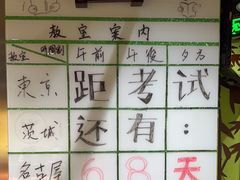 教室案内
教室 時間割 午前 午後 夕方
東京 距 考 试
茨城 还 有 :
名古屋 6 8 天